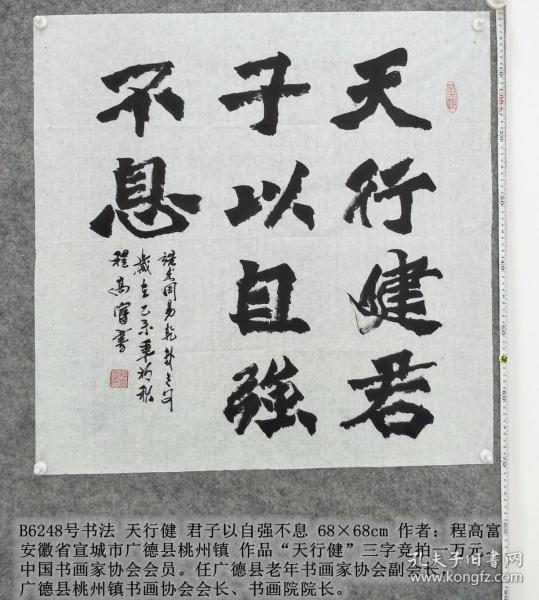 天行健君
子以自強
不息
歲在乙未年初秋
程高富書
B6248号书法 天行健 君子以自强不息 68×68cm 作者：程高富
安徽省宣城市广德县桃州镇 作品“天行健”三字竞拍一万元。
中国书画家协会会员。任广德县老年书画家协会副会长
广德县桃州镇书画协会会长、书画院院长。
孔夫子旧书网